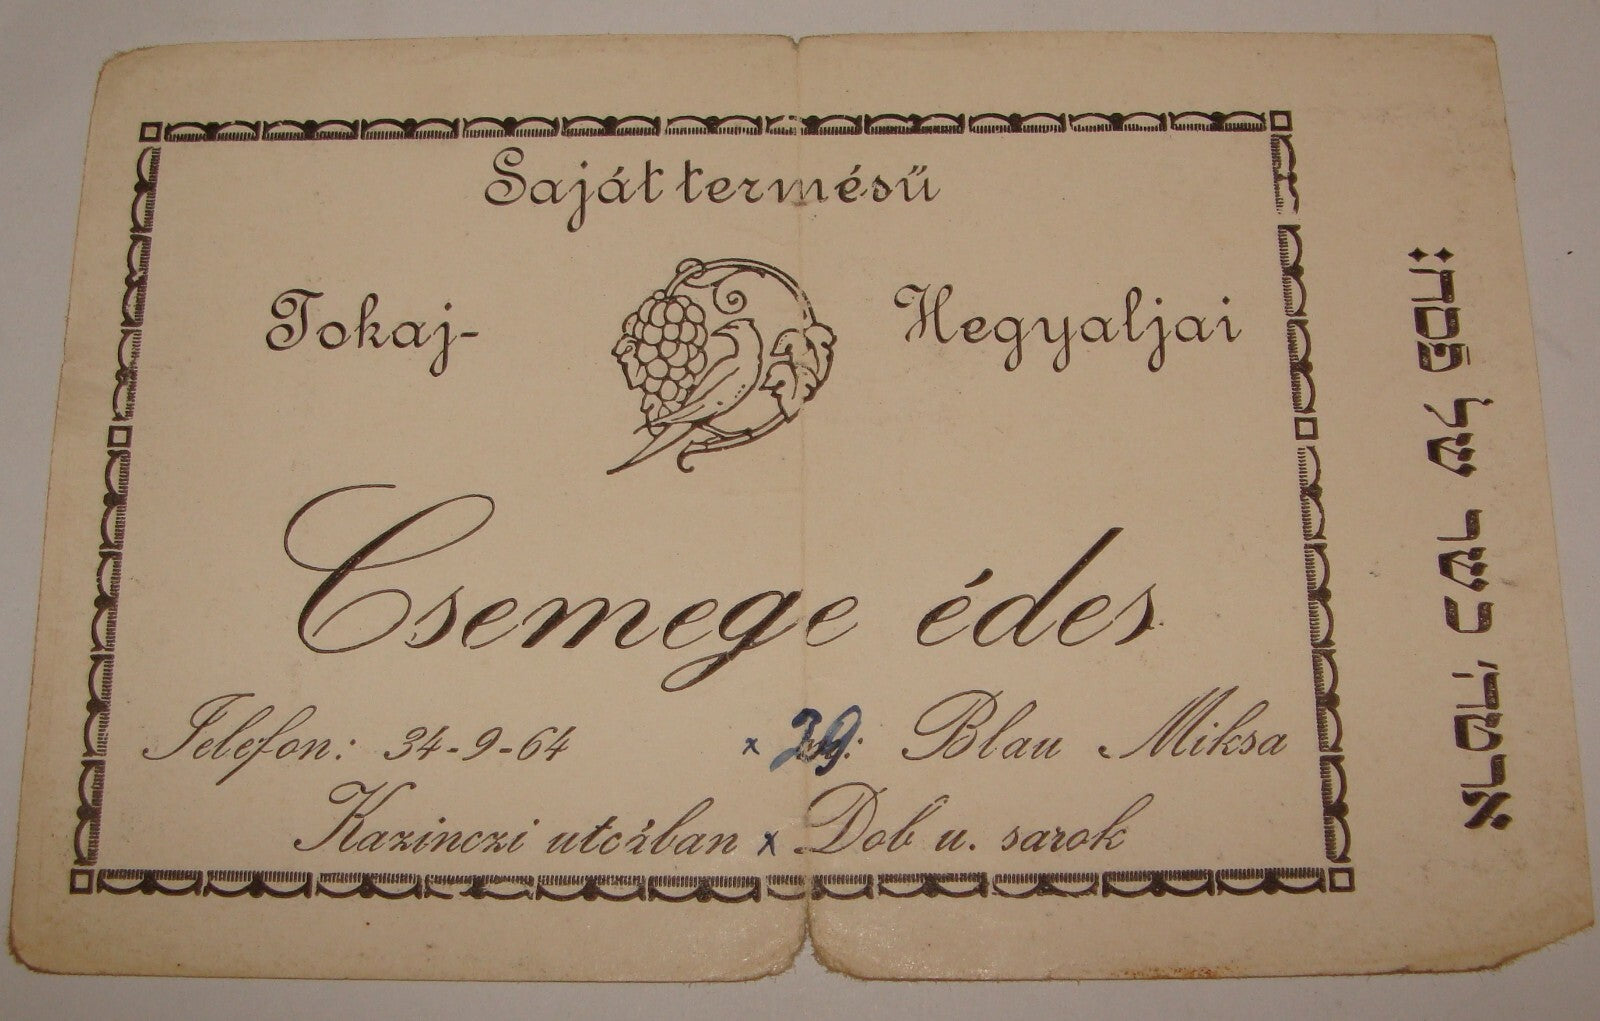 Saját termésü
Tokaj- Hegyaljai
Csemege édes
Telefon: 34-9-64 x 39: Blau Miksa
Kazinczi utcában x Dob u. sarok
ארטה' כשר של פסח: